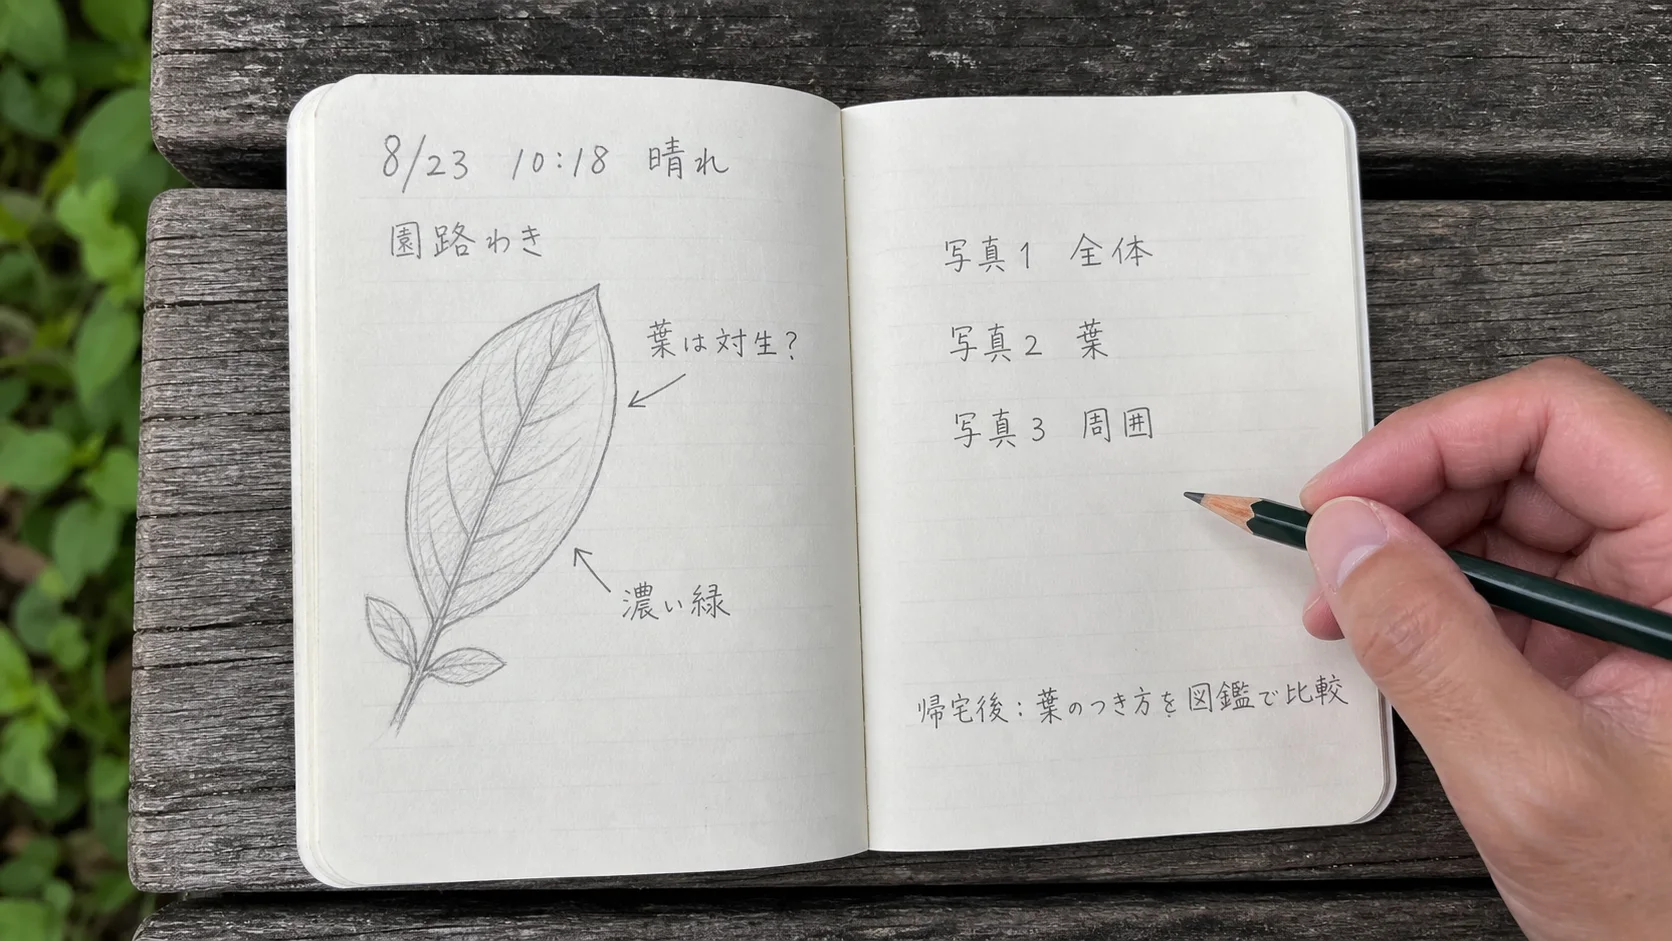 8/23 10:18 晴れ
園路わき
葉は対生?
濃い緑
写真1 全体
写真2 葉
写真3 周囲
帰宅後:葉のつき方を図鑑で比較